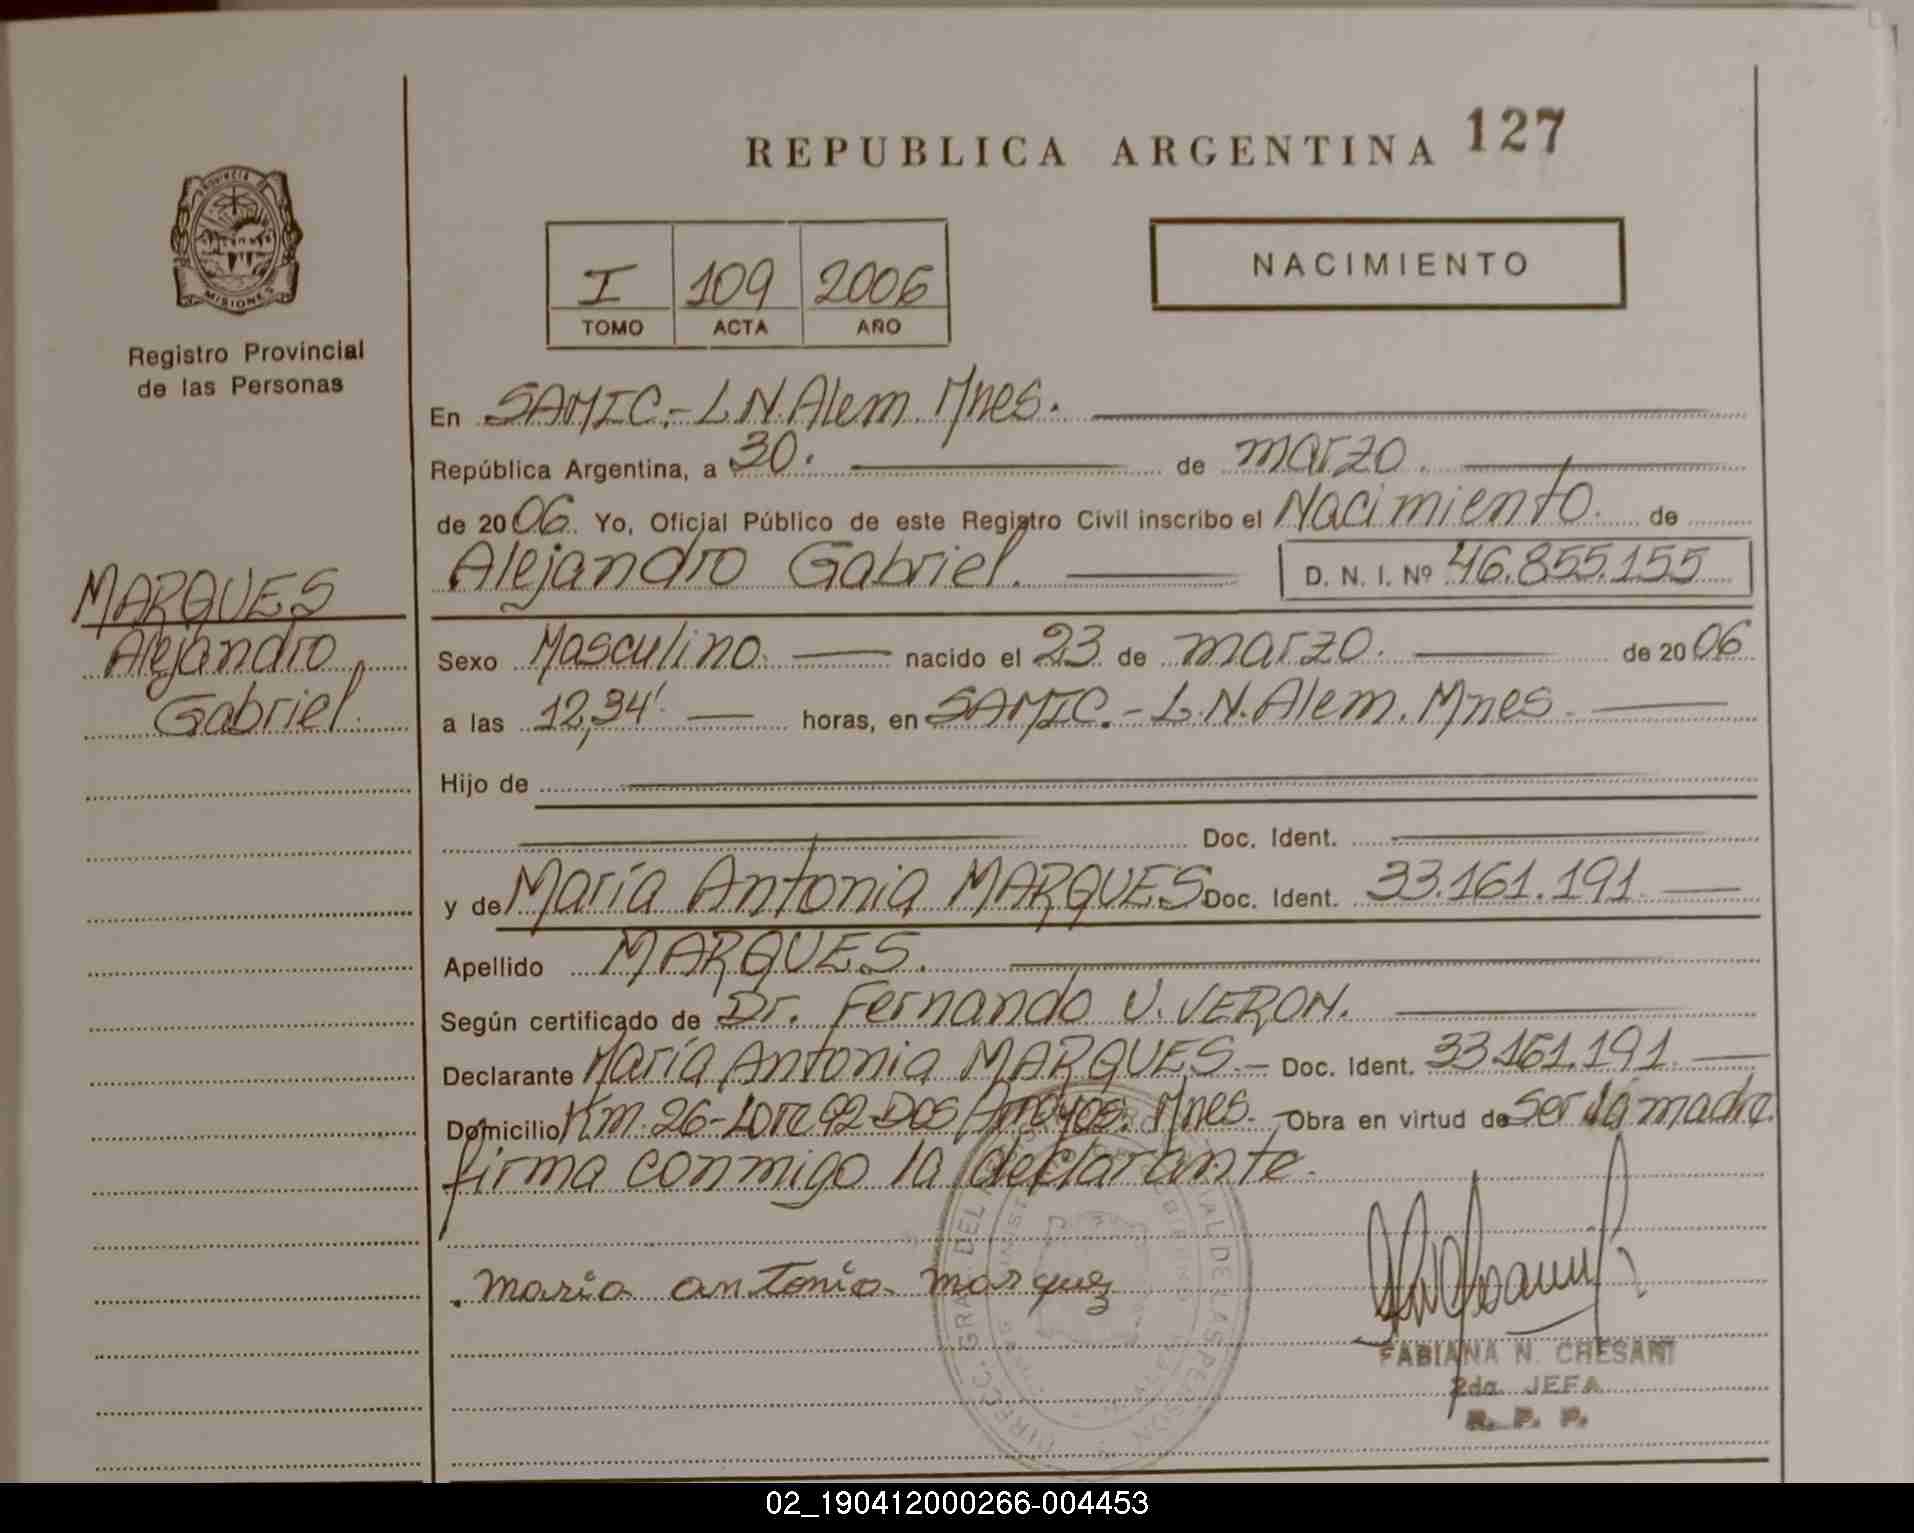 REPUBLICA ARGENTINA 127
PROVINCIA D
MISIONES
Registro Provincial
de las Personas
I 109 2006
TOMO ACTA AÑO
NACIMIENTO
En SAMIC.- L.N. Alem Mnes.
República Argentina, a 30. de marzo.
de 2006. Yo, Oficial Público de este Registro Civil inscribo el Nacimiento. de
Alejandro Gabriel. D. N. I. Nº 46.855.155
MARQUES
Alejandro
Gabriel.
Sexo Masculino. nacido el 23 de marzo. de 2006
a las 12,34'. horas, en SAMIC.- L.N. Alem. Mnes.
Hijo de
Doc. Ident.
y de María Antonia MARQUES Doc. Ident. 33.161.191.
Apellido MARQUES.
Según certificado de Dr. Fernando V. VERON.
Declarante María Antonia MARQUES.- Doc. Ident. 33.161.191.
Domicilio Km. 26-Lote 92-Dos Arroyos. Mnes. Obra en virtud de ser la madre.
firma conmigo la declarante.
maria antonia marquez
DIREC. GRAL. DEL DE LAS PERSON
FABIANA N. CHESANI
2da. JEFA
R. P. P.
02_190412000266-004453